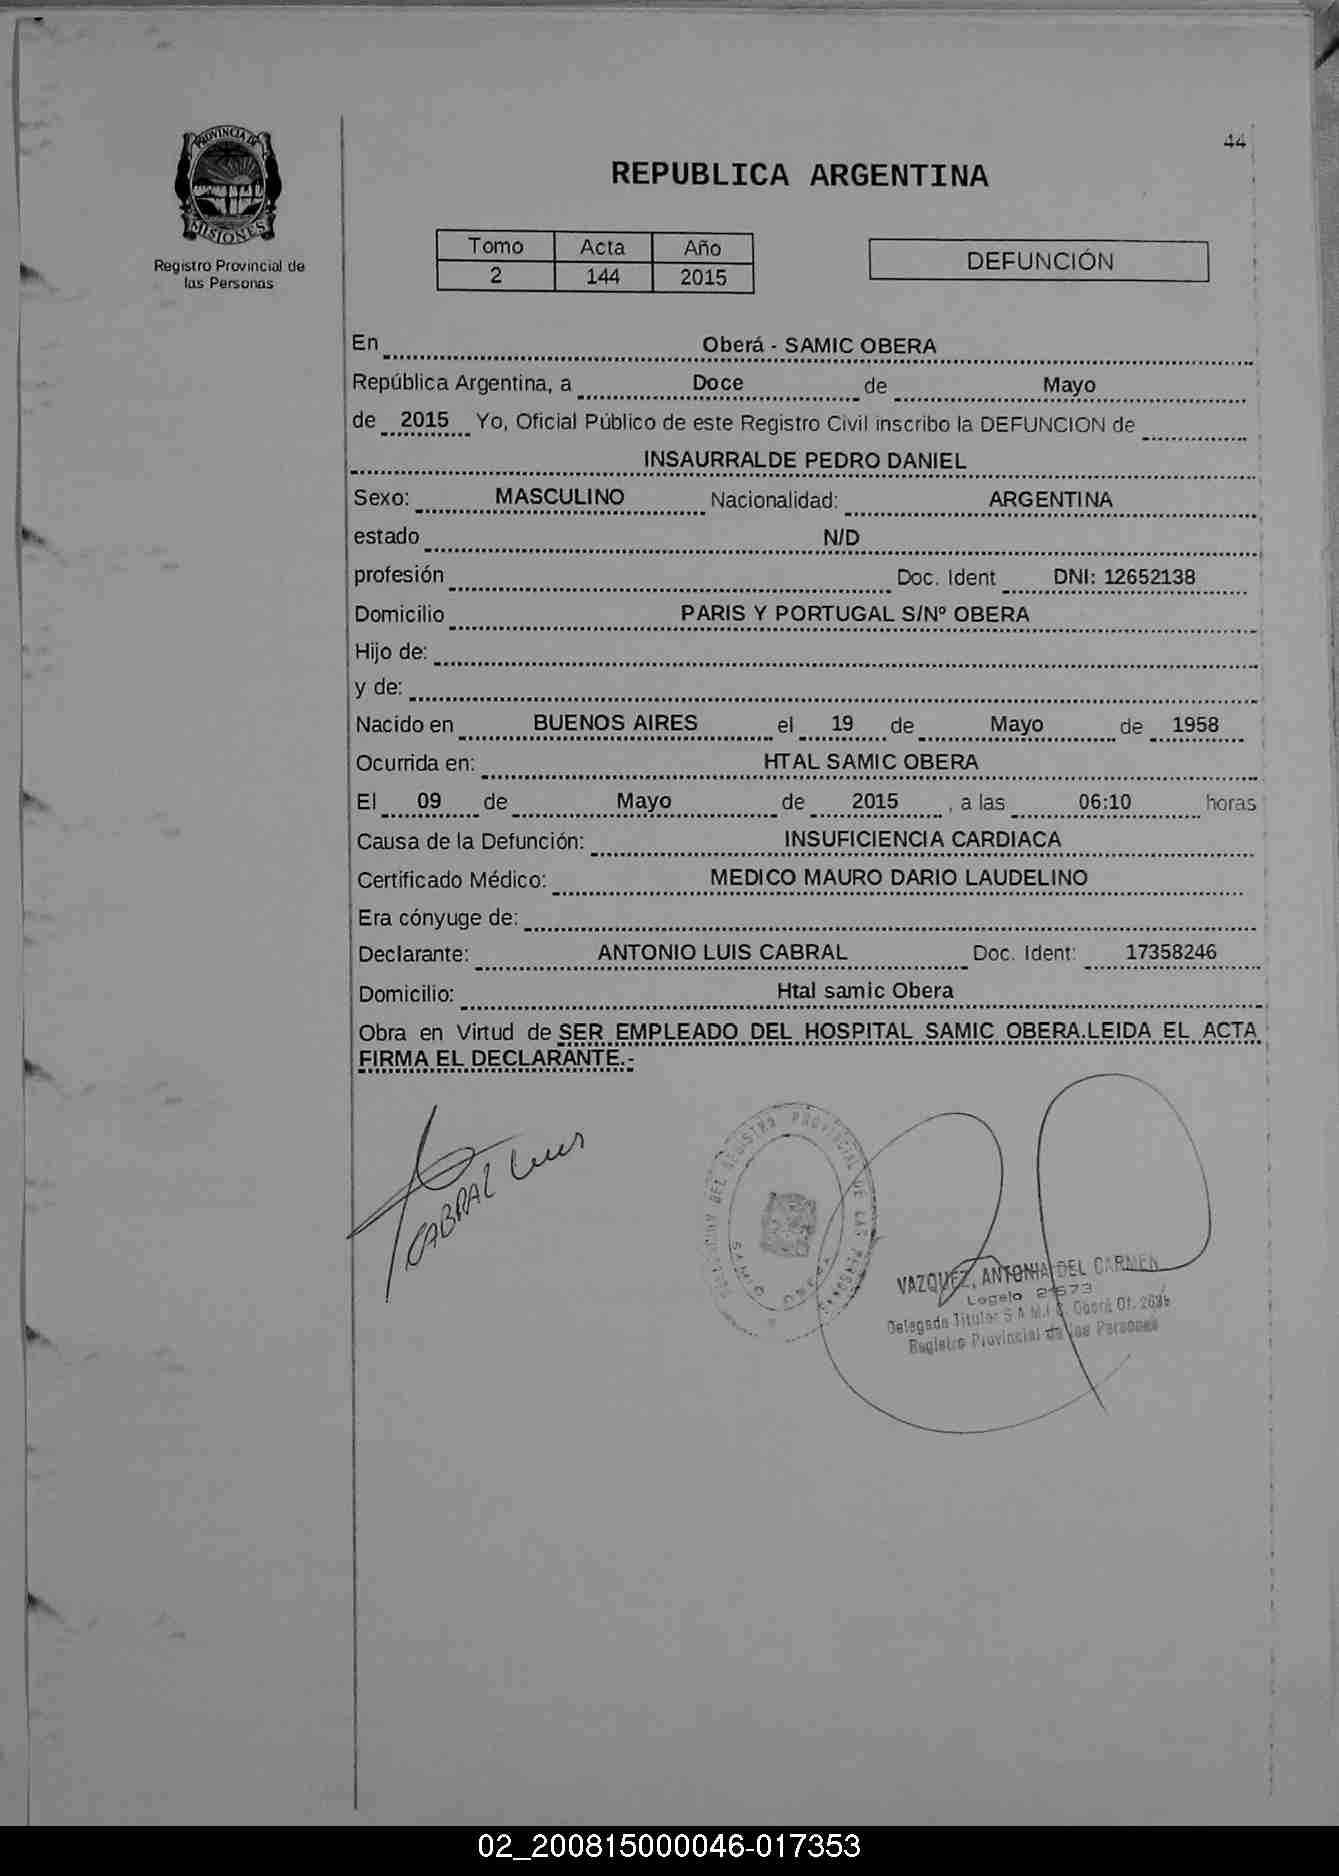 44
PROVINCIA DE
MISIONES
Registro Provincial de
las Personas
REPUBLICA ARGENTINA
Tomo Acta Año
2 144 2015
DEFUNCIÓN
En Oberá - SAMIC OBERA
República Argentina, a Doce de Mayo
de 2015 Yo, Oficial Público de este Registro Civil inscribo la DEFUNCION de
INSAURRALDE PEDRO DANIEL
Sexo: MASCULINO Nacionalidad: ARGENTINA
estado N/D
profesión Doc. Ident DNI: 12652138
Domicilio PARIS Y PORTUGAL S/Nº OBERA
Hijo de:
y de:
Nacido en BUENOS AIRES el 19 de Mayo de 1958
Ocurrida en: HTAL SAMIC OBERA
El 09 de Mayo de 2015 , a las 06:10 horas
Causa de la Defunción: INSUFICIENCIA CARDIACA
Certificado Médico: MEDICO MAURO DARIO LAUDELINO
Era cónyuge de:
Declarante: ANTONIO LUIS CABRAL Doc. Ident: 17358246
Domicilio: Htal samic Obera
Obra en Virtud de SER EMPLEADO DEL HOSPITAL SAMIC OBERA.LEIDA EL ACTA
FIRMA EL DECLARANTE.-
CABRAL Luis
DEL REGISTRO PROVINCIAL DE LAS PERSONAS
SAMIC
VAZQUEZ, ANTONIA DEL CARMEN
Legajo
Delegada Titular S.A.M.I.C. Oberá Of.
Registro Provincial de las Personas
02_200815000046-017353